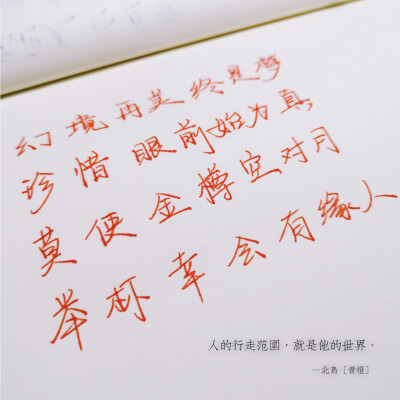 幻境再美终是梦
珍惜眼前始为真
莫使金樽空对月
举杯幸会有缘人
人的行走范围，就是他的世界。
—北岛［青灯］